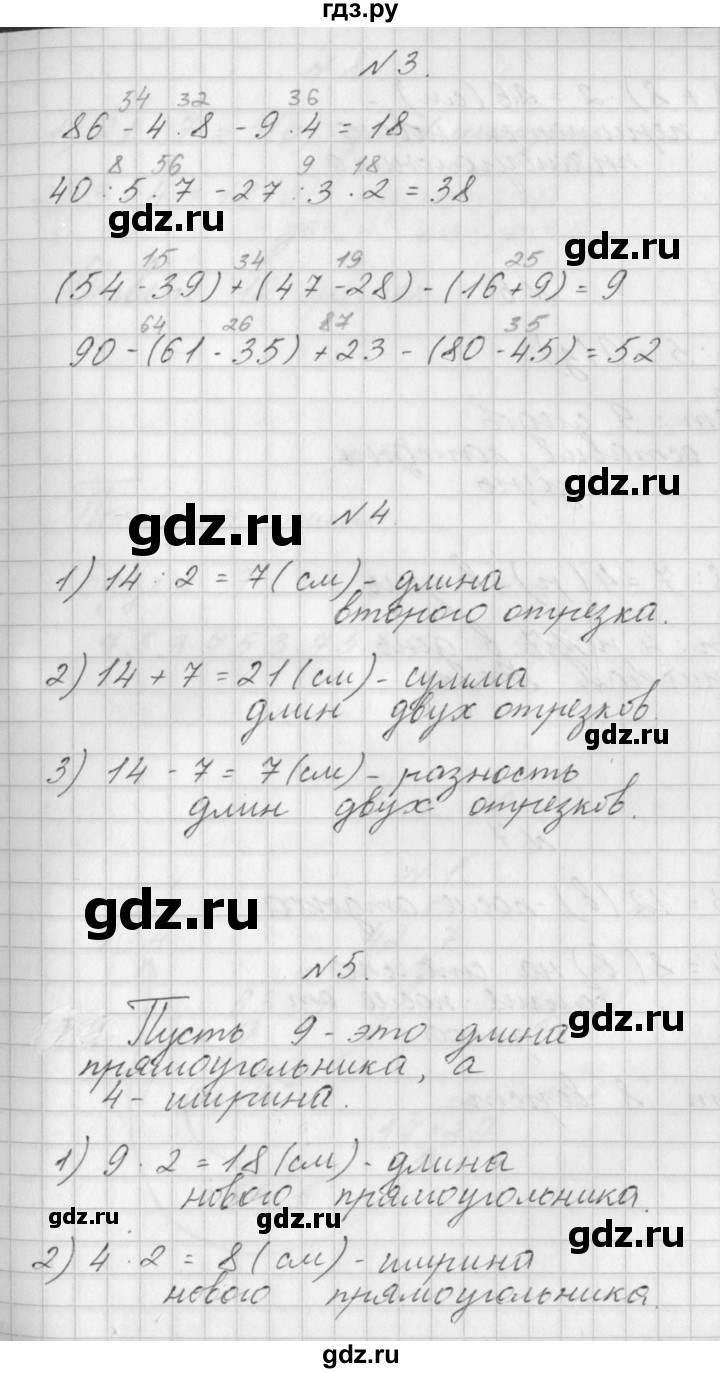 гдз.ру
№3.
34 32 36
86 - 4 · 8 - 9 · 4 = 18
8 56 9 18
40 : 5 · 7 - 27 : 3 · 2 = 38
gdz.ru
gdz.ru
15 34 19 25
(54 - 39) + (47 - 28) - (16 + 9) = 9
64 26 87 35
90 - (61 - 35) + 23 - (80 - 45) = 52
gdz.ru
gdz.ru
№4.
1) 14 : 2 = 7 (см) - длина
второго отрезка.
2) 14 + 7 = 21 (см) - сумма
длин двух отрезков.
gdz.ru
3) 14 - 7 = 7 (см) - разность
длин двух отрезков.
gdz.ru
№5.
Пусть 9 - это длина
gdz.ru
прямоугольника, а
4 - ширина.
1) 9 · 2 = 18 (см) - длина
нового прямоугольника.
gdz.ru
gdz.ru
gdz.ru
2) 4 · 2 = 8 (см) - ширина
нового прямоугольника.
gdz.ru